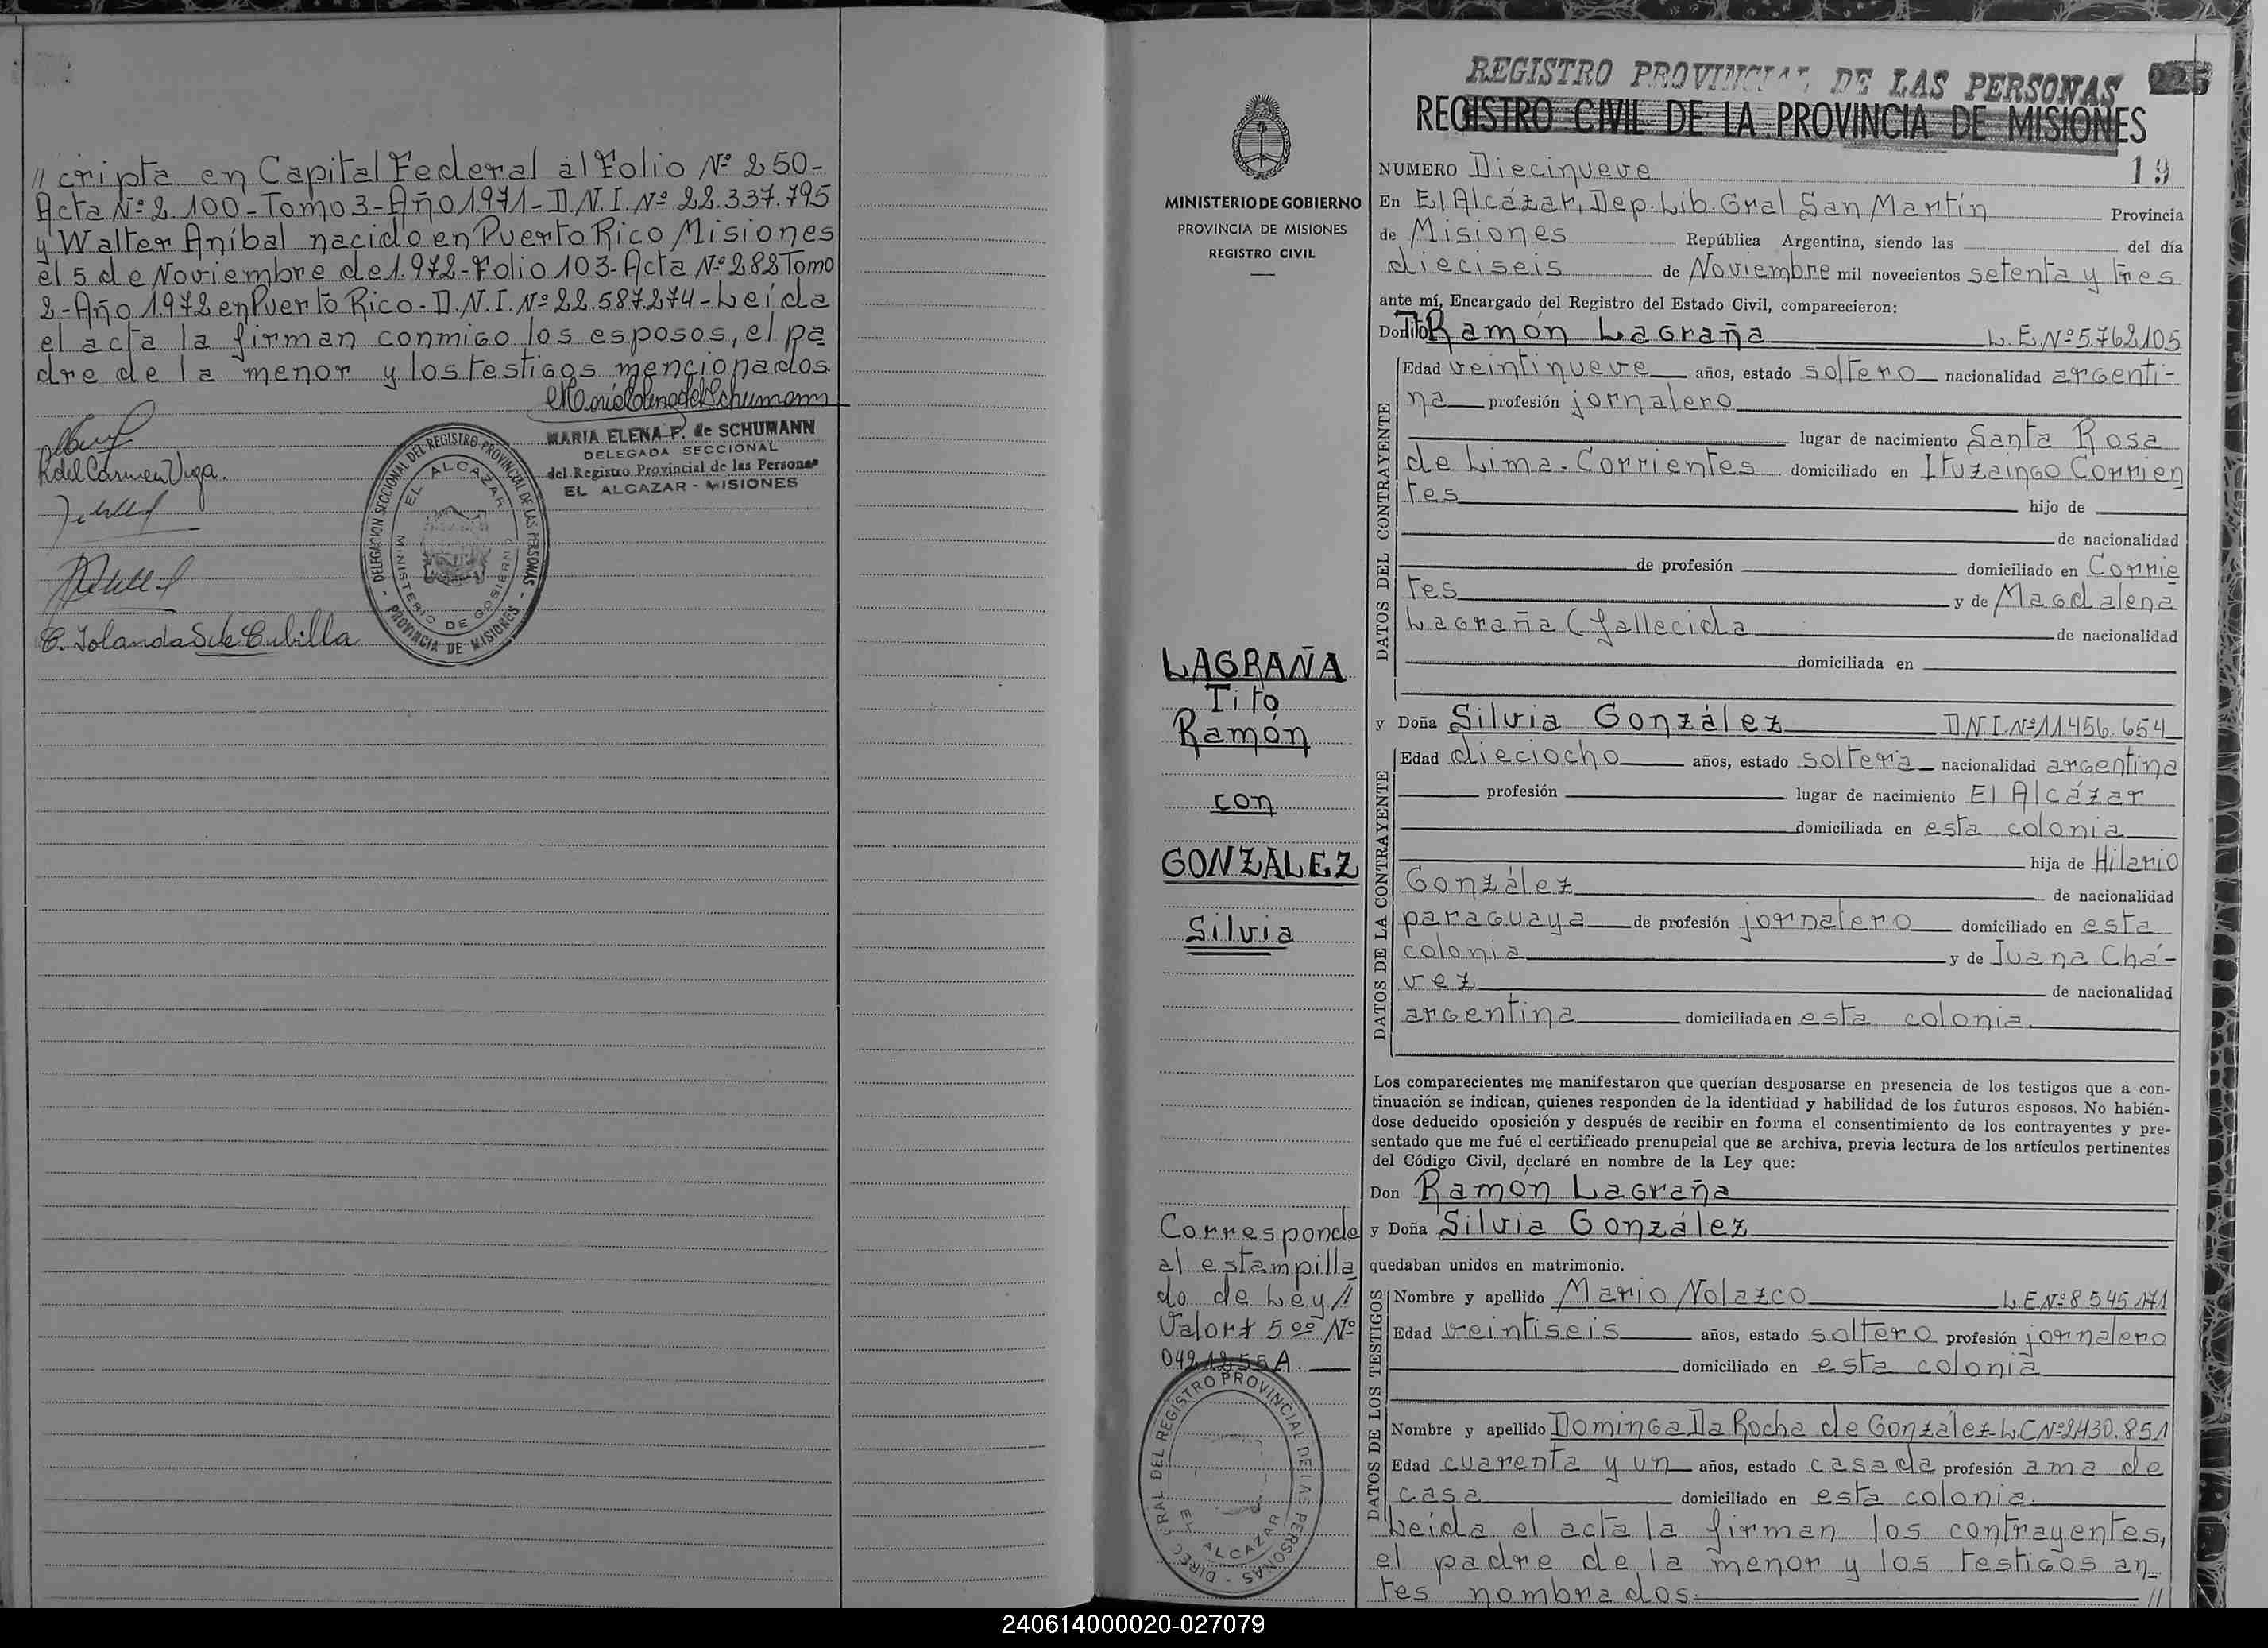 // cripta en Capital Federal al Folio Nº 250-
Acta Nº 2.100-Tomo 3-Año 1971-D.N.I. Nº 22.337.795
y Walter Aníbal nacido en Puerto Rico Misiones
el 5 de Noviembre de 1.972-Folio 103-Acta Nº 282 Tomo
2-Año 1.972 en Puerto Rico-D.N.I. Nº 22.587.274-Leída
el acta la firman conmigo los esposos, el pa
dre de la menor y los testigos mencionados.
MARIA ELENA P. de SCHUMANN
DELEGADA SECCIONAL
del Registro Provincial de las Personas
EL ALCAZAR - MISIONES
R del Carmen Vega.
DELEGACION SECCIONAL DEL REGISTRO PROVINCIAL DE LAS PERSONAS - PROVINCIA DE MISIONES -
EL ALCAZAR
MINISTERIO DE GOBIERNO
C. Yolanda S de Cubilla
MINISTERIO DE GOBIERNO
PROVINCIA DE MISIONES
REGISTRO CIVIL
LAGRAÑA
Tito
Ramón
con
GONZALEZ
Silvia
Corresponde
al estampilla
do de Ley //
Valor $ 5 00 Nº
DIREC. GRAL DEL REGISTRO PROVINCIAL DE LAS PERSONAS -
EL ALCAZAR
REGISTRO PROVINCIAL DE LAS PERSONAS 225
REGISTRO CIVIL DE LA PROVINCIA DE MISIONES
NUMERO Diecinueve 19
En El Alcázar, Dep. Lib. Gral San Martín Provincia
de Misiones República Argentina, siendo las del día
dieciseis de Noviembre mil novecientos setenta y tres
ante mí, Encargado del Registro del Estado Civil, comparecieron:
Don Tito Ramón Lagraña L.E. Nº 5.762.105
DATOS DEL CONTRAYENTE
Edad veintinueve años, estado soltero nacionalidad argenti-
na profesión jornalero
lugar de nacimiento Santa Rosa
de Lima-Corrientes domiciliado en Ituzaingo Corrien
tes hijo de
de nacionalidad
de profesión domiciliado en Corrie
tes y de Magdalena
Lagraña (fallecida de nacionalidad
domiciliada en
y Doña Silvia González D.N.I. Nº 11.456.654
DATOS DE LA CONTRAYENTE
Edad dieciocho años, estado soltera nacionalidad argentina
profesión lugar de nacimiento El Alcázar
domiciliada en esta colonia
hija de Hilario
González de nacionalidad
paraguaya de profesión jornalero domiciliado en esta
colonia y de Juana Chá-
vez de nacionalidad
argentina domiciliada en esta colonia.
Los comparecientes me manifestaron que querían desposarse en presencia de los testigos que a con-
tinuación se indican, quienes responden de la identidad y habilidad de los futuros esposos. No habién-
dose deducido oposición y después de recibir en forma el consentimiento de los contrayentes y pre-
sentado que me fué el certificado prenupcial que se archiva, previa lectura de los artículos pertinentes
del Código Civil, declaré en nombre de la Ley que:
Don Ramón Lagraña
y Doña Silvia González
quedaban unidos en matrimonio.
DATOS DE LOS TESTIGOS
Nombre y apellido Mario Nolazco L.E Nº 8.545.171
Edad veintiseis años, estado soltero profesión jornalero
domiciliado en esta colonia
Nombre y apellido Dominga Da Rocha de González L.C Nº 2.430.851
Edad cuarenta y un años, estado casada profesión ama de
casa domiciliado en esta colonia.
Leída el acta la firman los contrayentes,
el padre de la menor y los testigos an-
tes nombrados. //
240614000020-027079